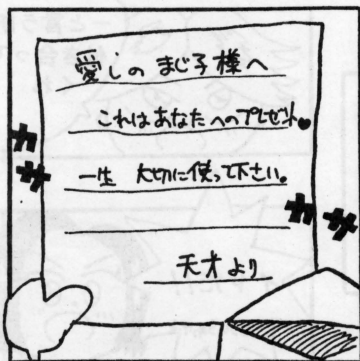 愛しの まじ子様へ
これはあなたへのプレゼント♥
一生 大切に使って下さい。
天才より
カサ
カサ